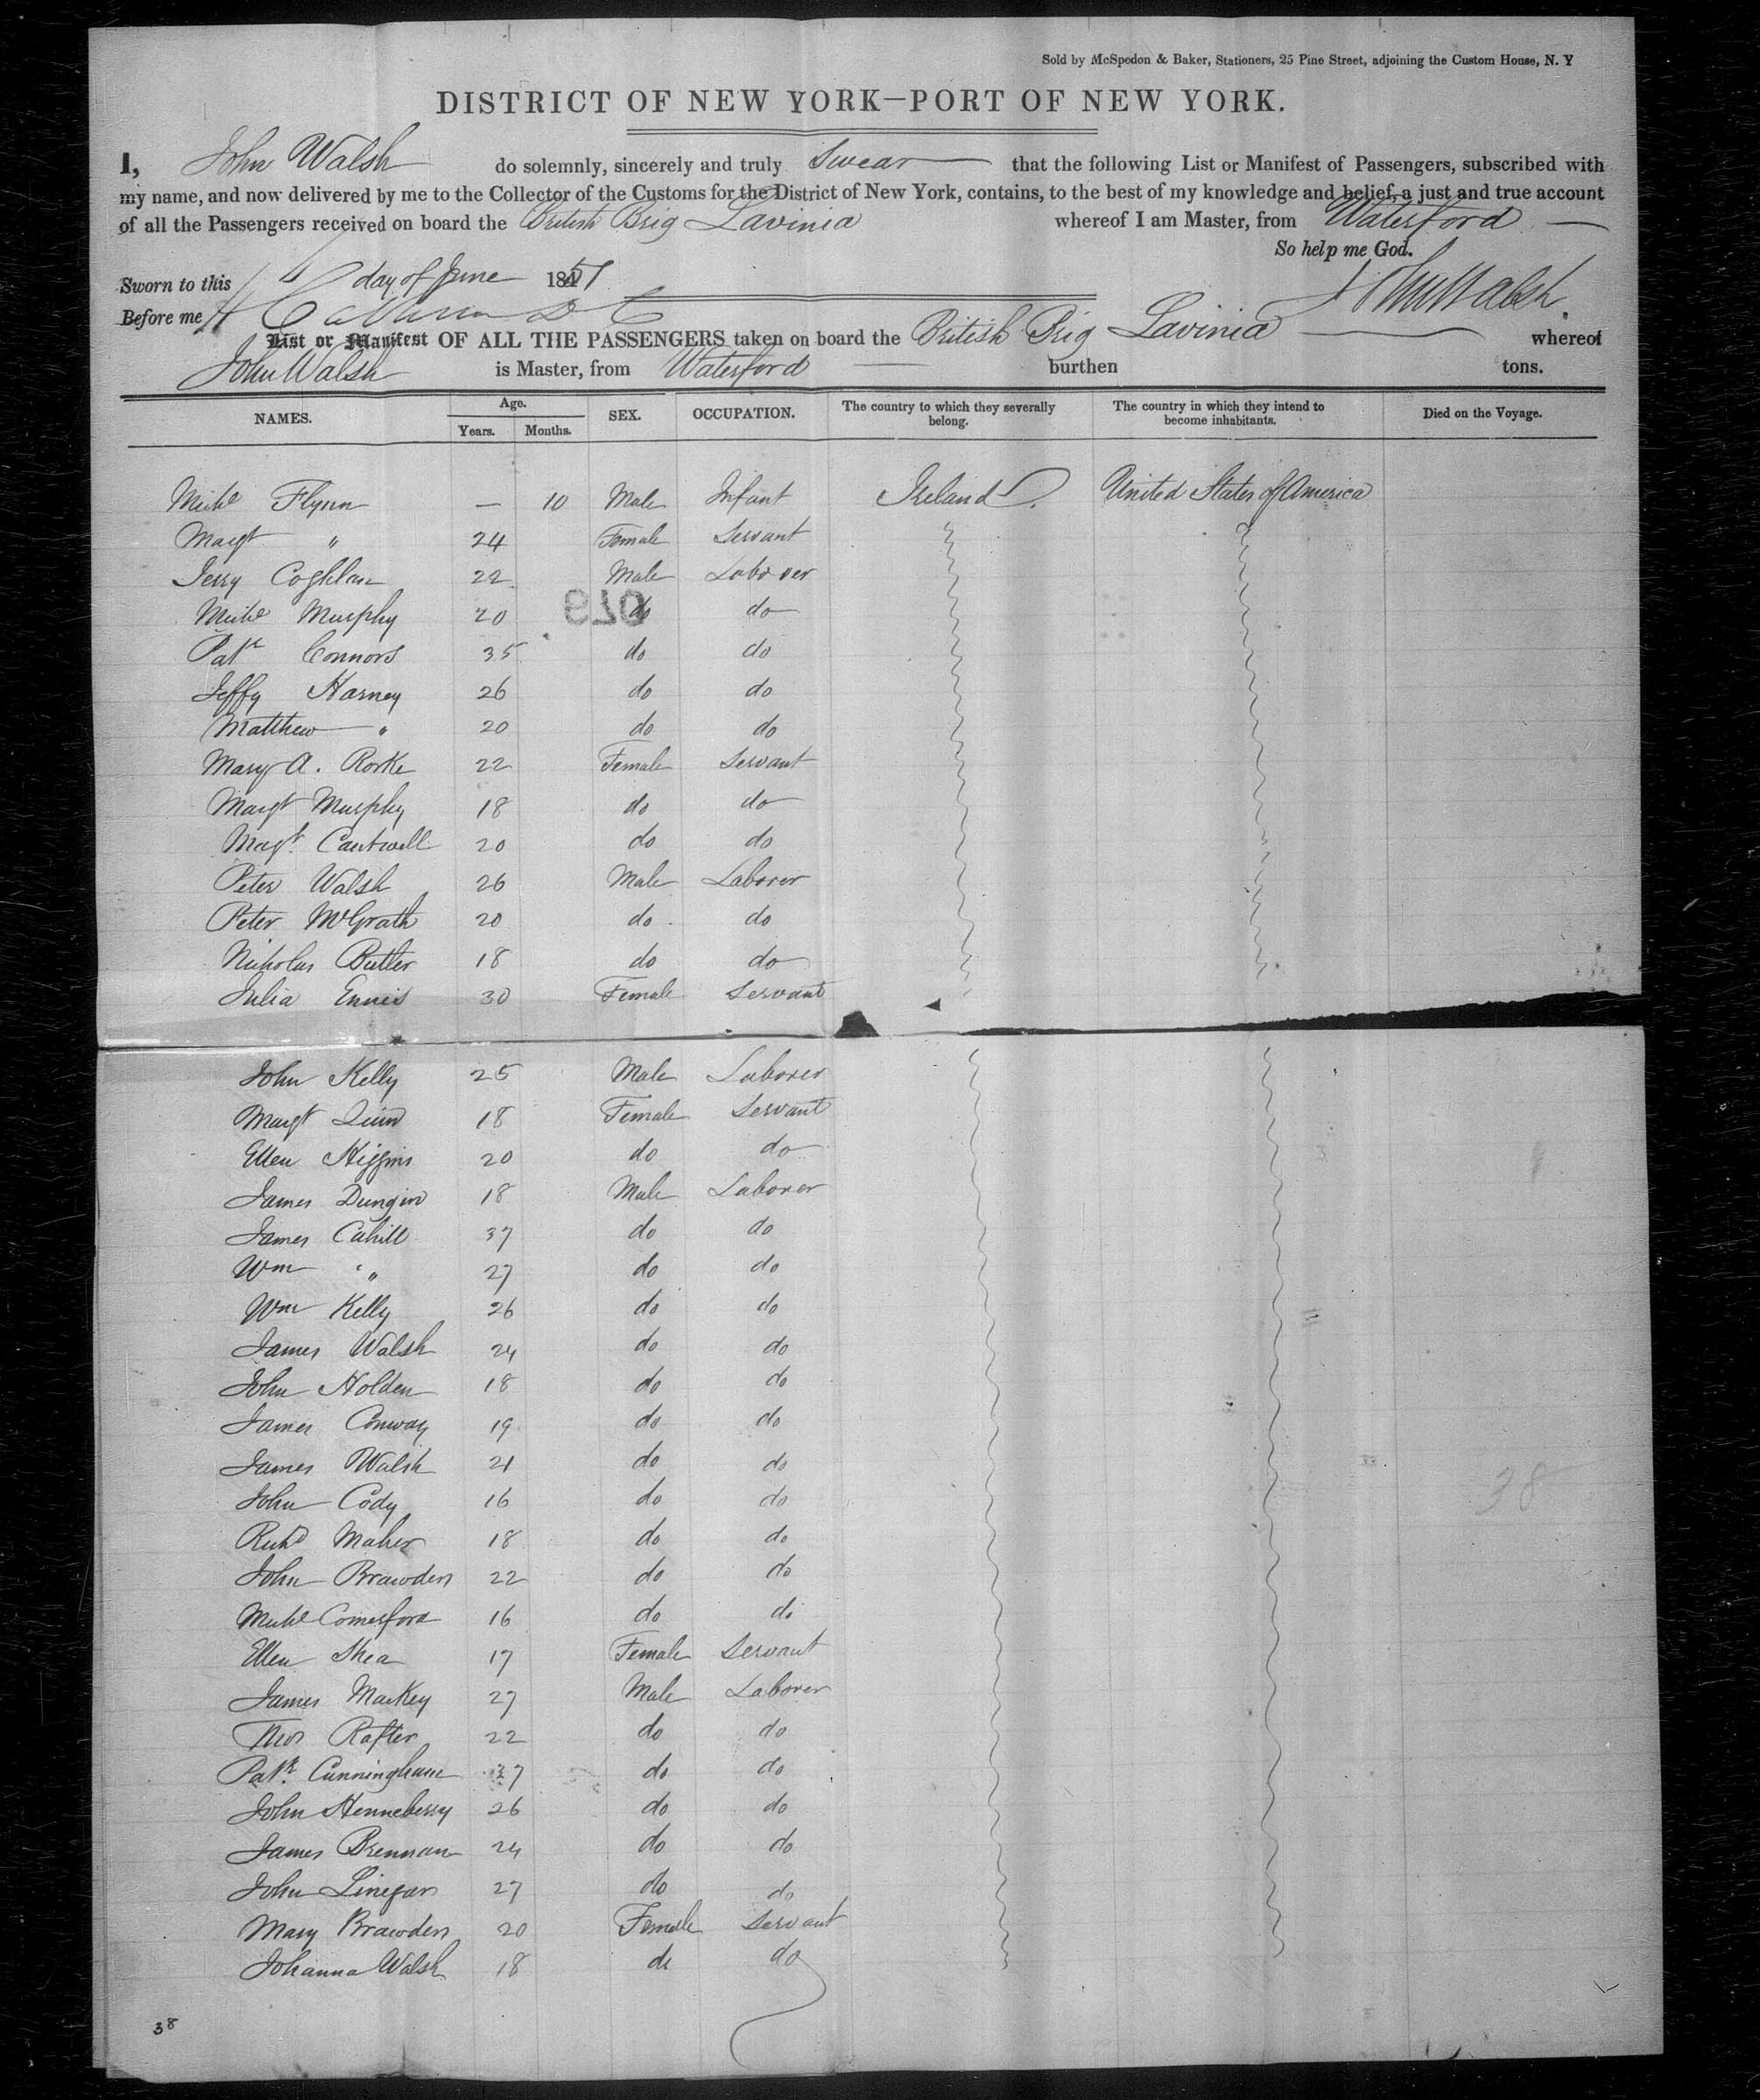 Sold by McSpedon & Baker, Stationers, 25 Pine Street, adjoining the Custom House, N. Y
DISTRICT OF NEW YORK—PORT OF NEW YORK.
I, John Walsh do solemnly, sincerely and truly Swear that the following List or Manifest of Passengers, subscribed with
my name, and now delivered by me to the Collector of the Customs for the District of New York, contains, to the best of my knowledge and belief, a just and true account
of all the Passengers received on board the British Brig Lavinia whereof I am Master, from Waterford
So help me God.
Sworn to this day of June 1851
John Walsh
Before me
List or Manifest OF ALL THE PASSENGERS taken on board the British Brig Lavinia whereof
John Walsh is Master, from Waterford burthen tons.
NAMES. Age. Years. Months. SEX. OCCUPATION. The country to which they severally belong. The country in which they intend to become inhabitants. Died on the Voyage.
Michl Flynn — 10 Male Infant Ireland United States of America
Margt " 24 Female Servant
Jerry Coghlan 22 Male Laborer
Michl Murphy 20 do do
979
Patk Connors 35 do do
Jeffy Harney 26 do do
Matthew " 20 do do
Mary A. Rorke 22 Female Servant
Margt Murphy 18 do do
Magt. Cantwell 20 do do
Peter Walsh 26 Male Laborer
Peter McGrath 20 do do
Nicholas Butler 18 do do
Julia Ennis 30 Female Servant
John Kelly 25 Male Laborer
Margt Quin 18 Female Servant
Ellen Higgins 20 do do
James Dungin 18 Male Laborer
James Cahill 37 do do
Wm " 27 do do
Wm Kelly 26 do do
James Walsh 24 do do
John Holden 18 do do
James Conway 19 do do
James Walsh 21 do do
John Cody 16 do do
38
Richd Maher 18 do do
John Brawders 22 do do
Michl Comerford 16 do do
Ellen Shea 17 Female Servant
James Mackey 27 Male Laborer
Thos Rafter 22 do do
Patk. Cunningham 27 do do
John Henneberry 26 do do
James Brennan 24 do do
John Linegar 27 do do
Mary Brawders 20 Female Servant
Johanna Walsh 18 do do
38